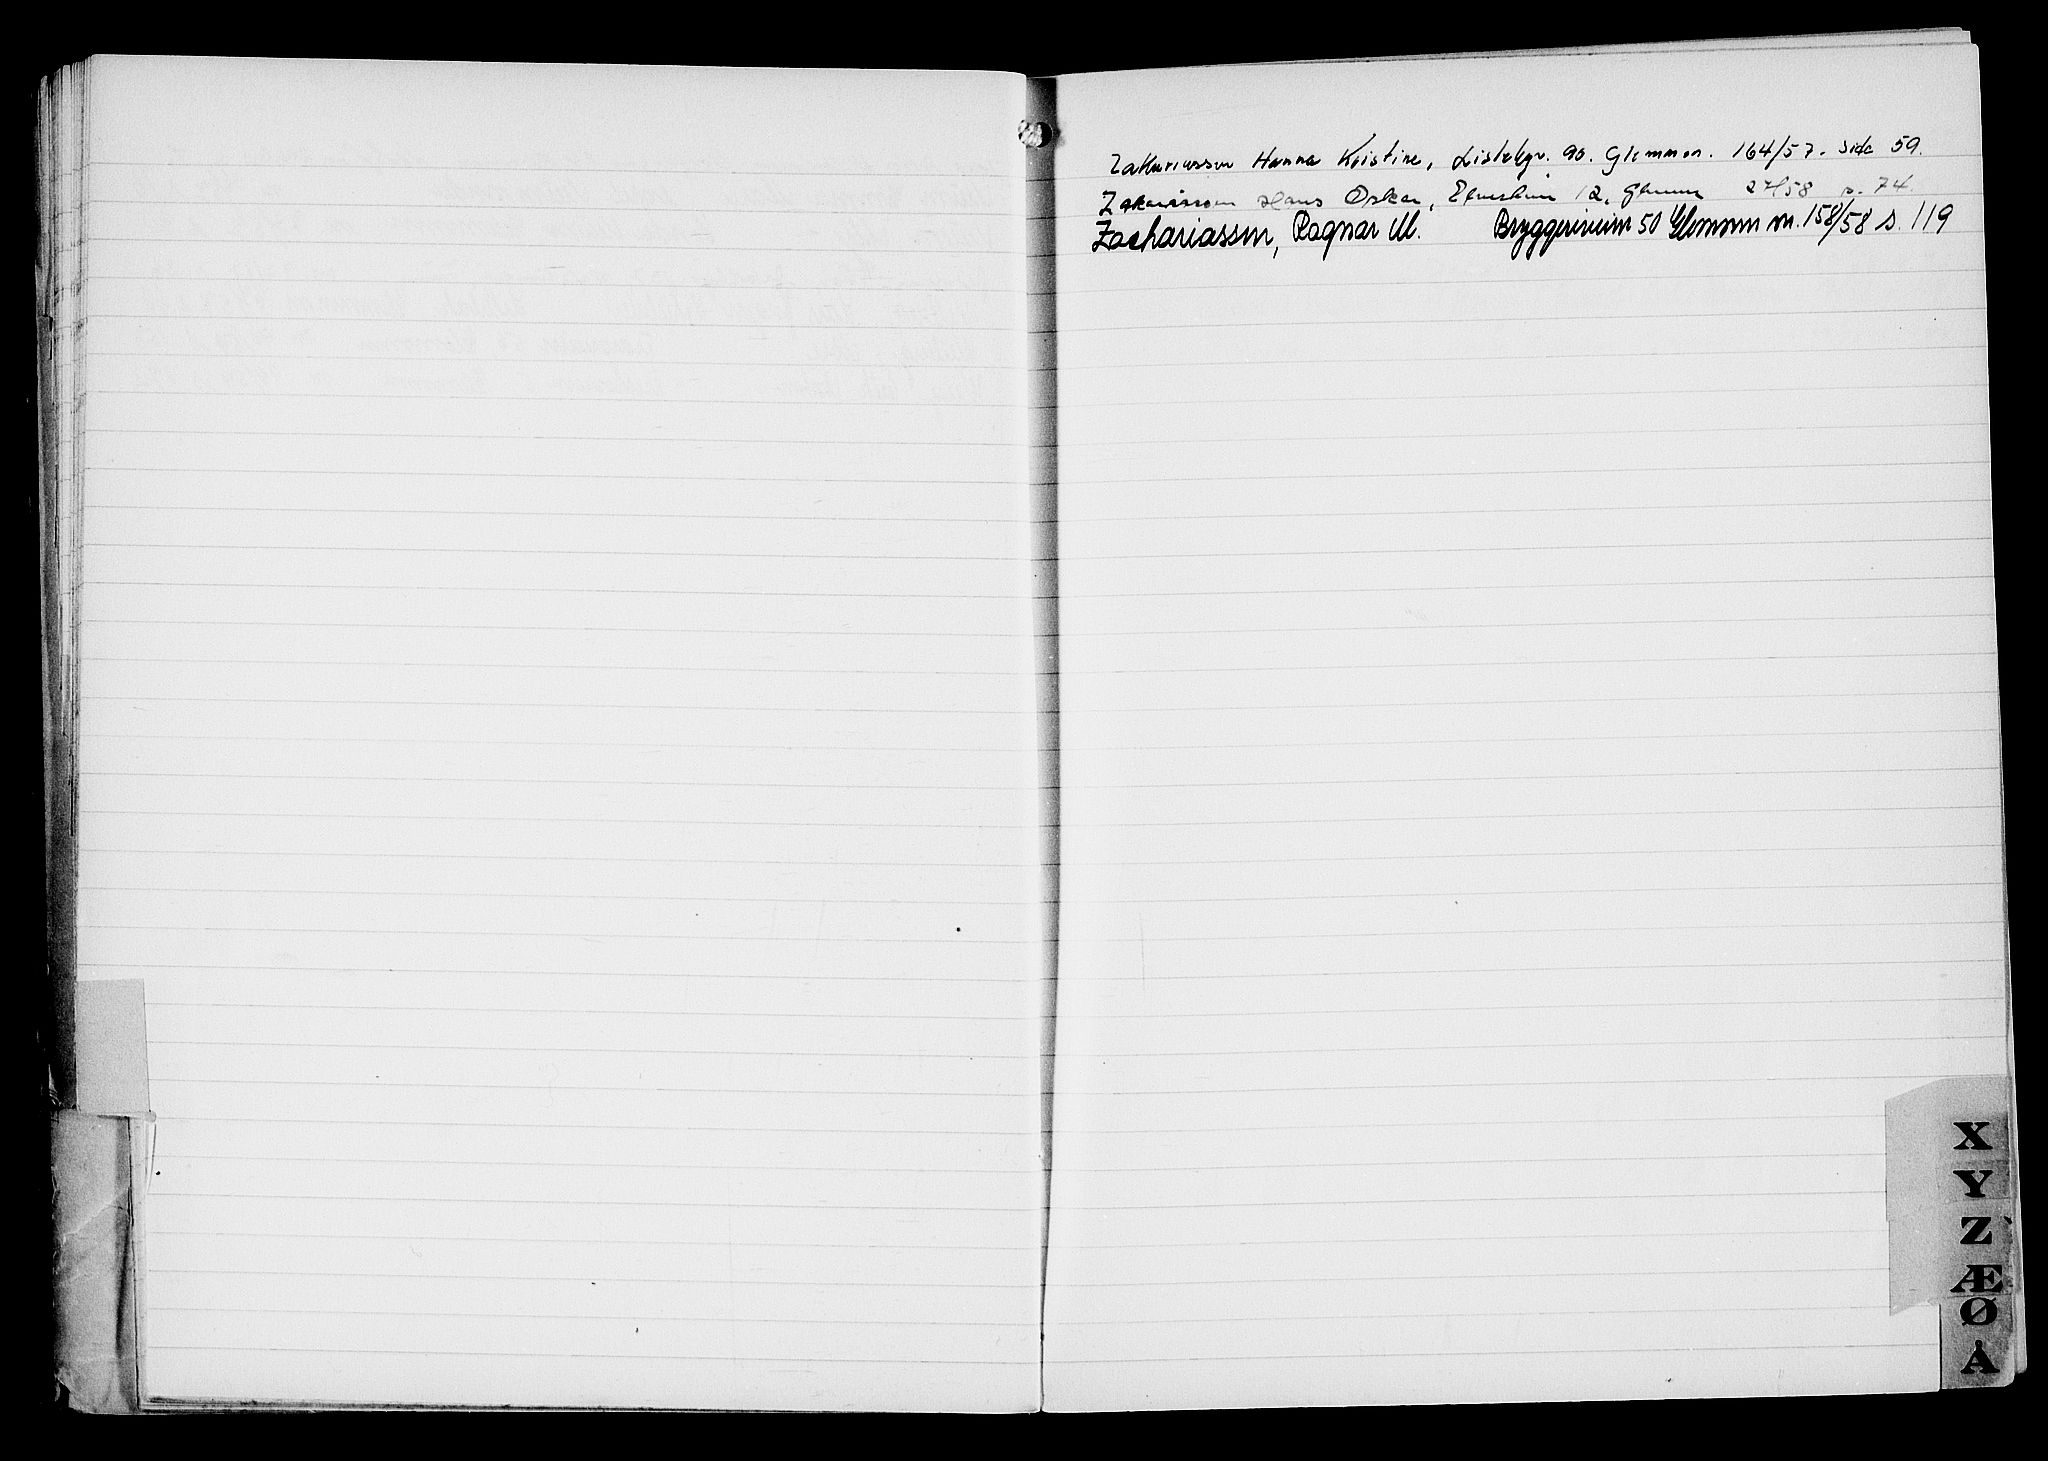 Zakariassen Hanna Kristine, Listebgr. 90. Glemmen. 164/57. side 59.
Zakariassen Hans Oskar, 12, Glemmen 27/58 s. 74.
Zachariassen, Ragnar M. Bryggeriveien 50 Glemmen nr. 158/58 s. 119
X
Y
Z
Æ
Ø
Å